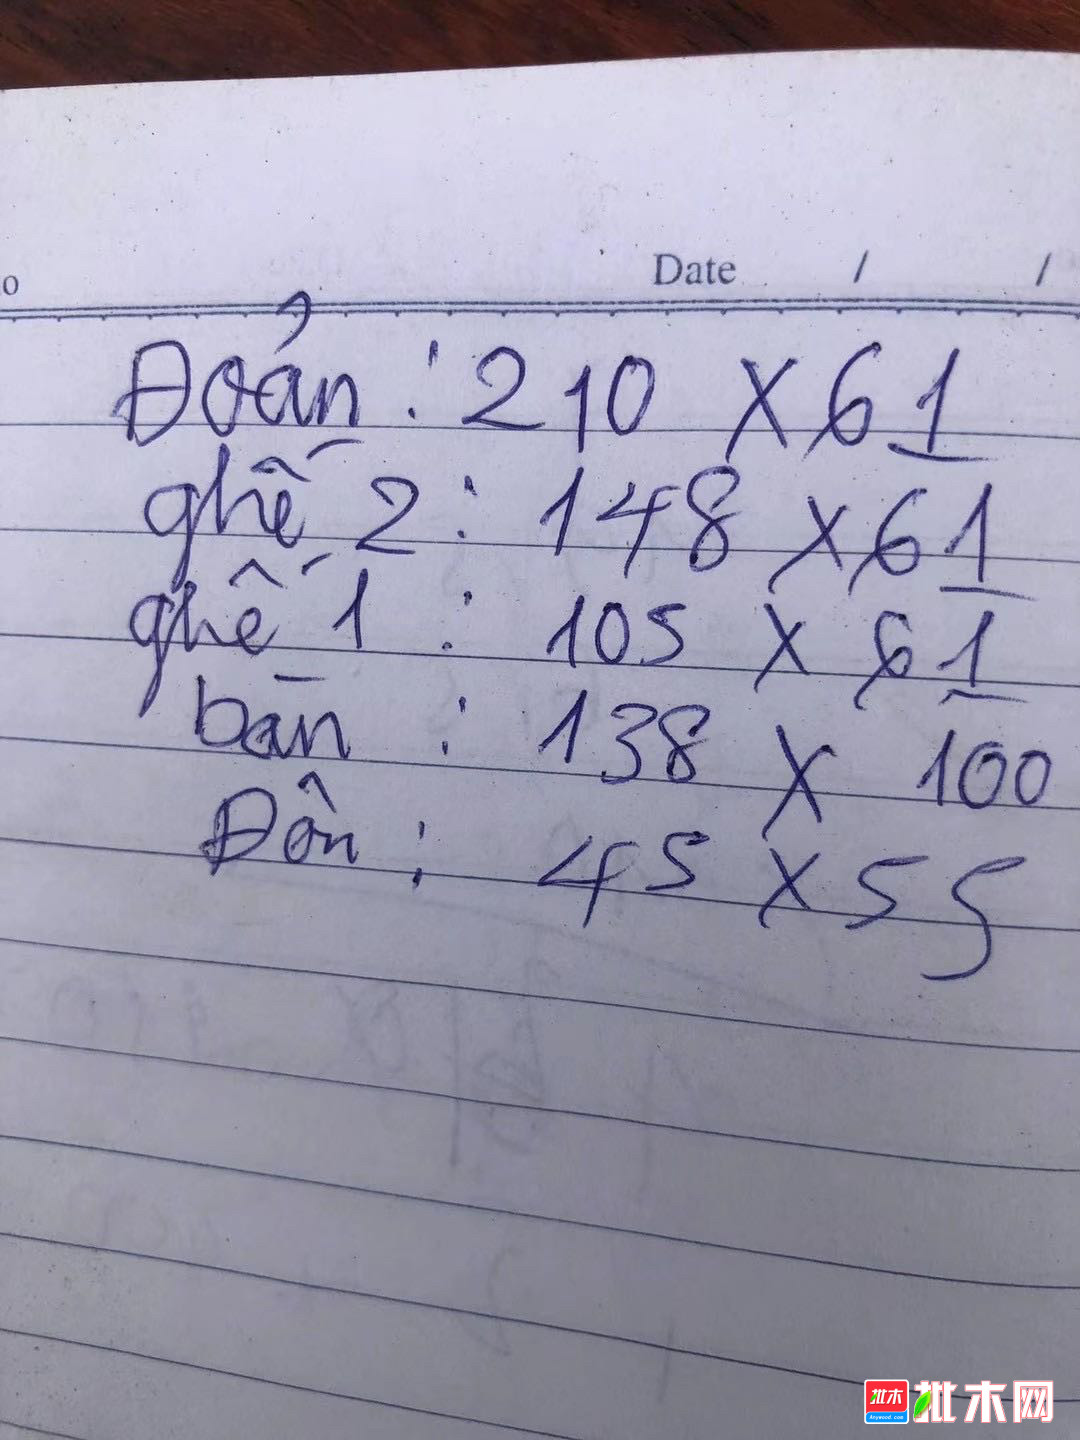 o
Date / /
Đoản : 210 x 61
ghế 2 : 148 x 61
ghế 1 : 105 x 61
bàn : 138 x 100
Đôn : 45 x 55
批木
Anywood.com
批木网